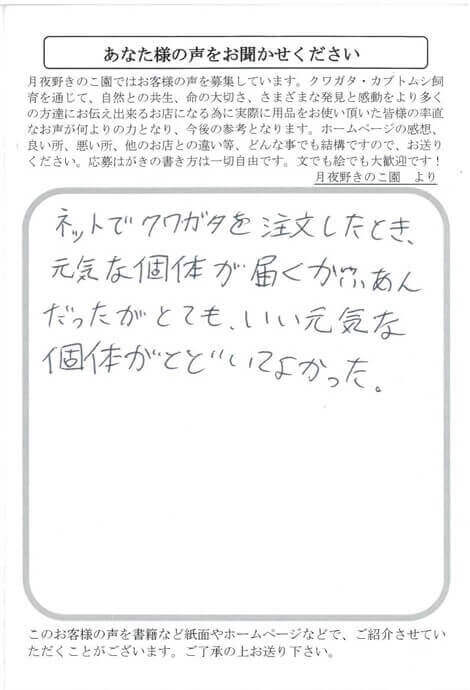 あなた様の声をお聞かせください
月夜野きのこ園ではお客様の声を募集しています。クワガタ・カブトムシ飼
育を通じて、自然との共生、命の大切さ、さまざまな発見と感動をより多く
の方達にお伝え出来るお店になる為に実際に用品をお使い頂いた皆様の率直
なお声が何よりの力となり、今後の参考となります。ホームページの感想、
良い所、悪い所、他のお店との違い等、どんな事でも結構ですので、お送り
ください。応募はがきの書き方は一切自由です。文でも絵でも大歓迎です！
月夜野きのこ園　より
ネットでクワガタを注文したとき、
元気な個体が届くかふあん
だったがとても、いい元気な
個体がとどいてよかった。
このお客様の声を書籍など紙面やホームページなどで、ご紹介させてい
ただくことがございます。ご了承の上お送り下さい。